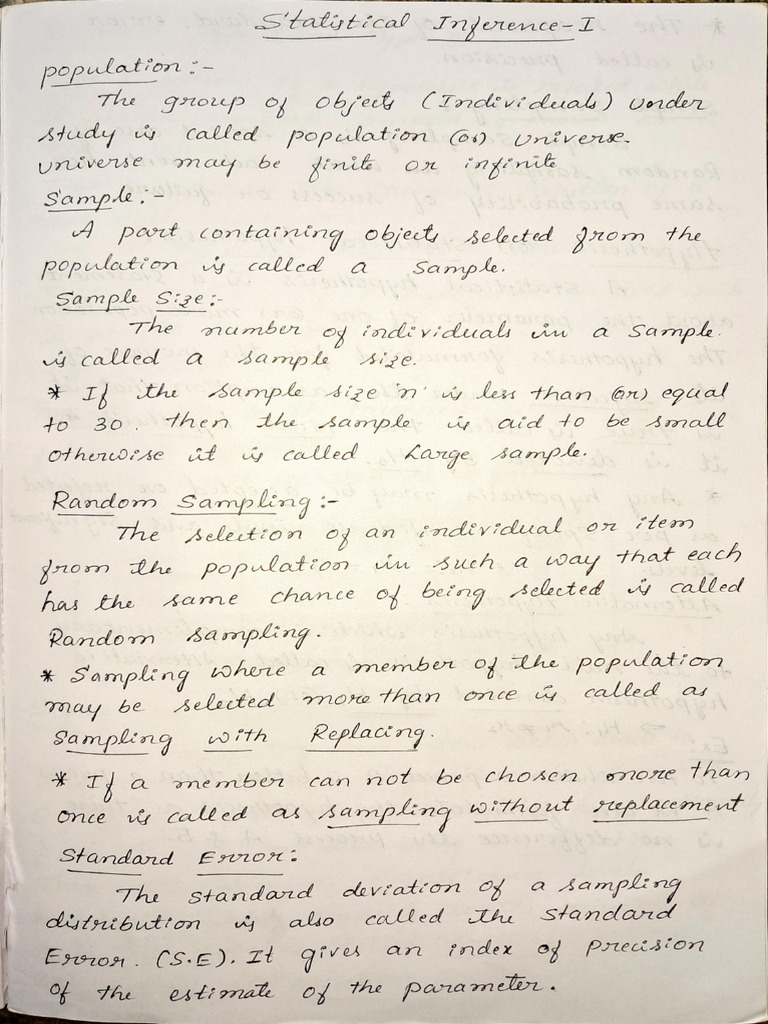 Statistical Inference-I
population:-
The group of objects (Individuals) under
study is called population (or) universe.
universe may be finite or infinite
Sample:-
A part containing objects selected from the
population is called a sample.
Sample Size:-
The number of individuals in a sample.
is called a sample size.
* If the sample size 'n' is less than (or) equal
to 30. then the sample is aid to be small
otherwise it is called Large sample.
Random Sampling:-
The selection of an individual or item
from the population in such a way that each
has the same chance of being selected is called
Random sampling.
* Sampling where a member of the population
may be selected more than once is called as
Sampling with Replacing.
* If a member can not be chosen more than
once is called as sampling without replacement
Standard Error:
The standard deviation of a sampling
distribution is also called the standard
Error. (S.E). It gives an index of precision
of the estimate of the parameter.